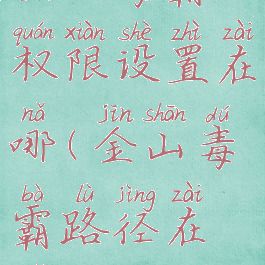 quán xiàn shè zhì zài
权限设置在
nǎ jīn shān dú
哪(金山毒
bà lù jìng zài
霸路径在